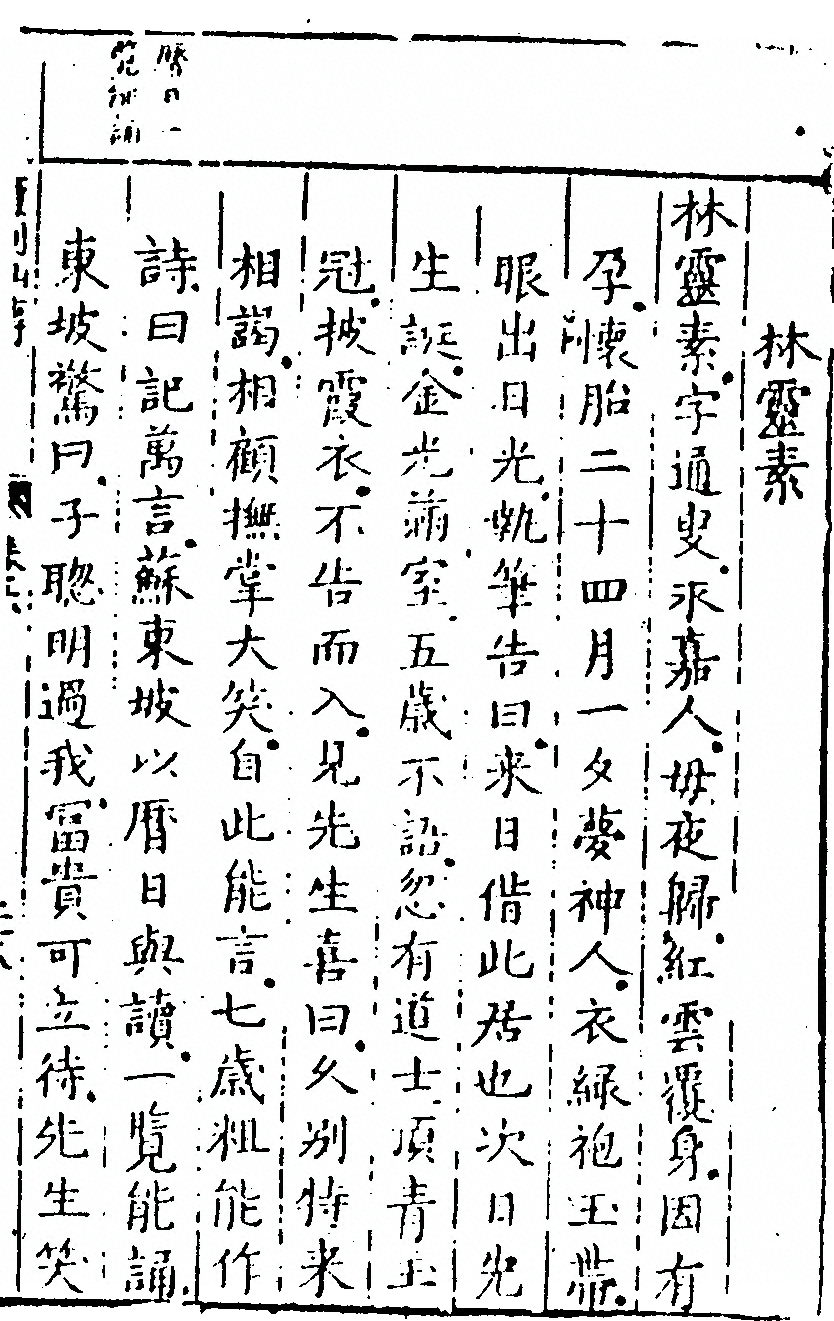 曆日一
覽能誦
林靈素
林靈素字通叟永嘉人母夜歸紅雲覆身因有
孕懷胎二十四月一夕夢神人衣綠袍玉帶
眼出日光執筆告曰来日偕此居也次日先
生誕金光滿室五歲不語忽有道士頂青玉
冠披霞衣不告而入見先生喜曰久別特来
相謁相顧撫掌大笑自此能言七歲粗能作
詩日記萬言蘇東坡以曆日與讀一覽能誦
東坡驚曰子聰明過我富貴可立待先生笑